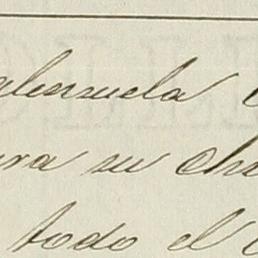 alenzuela
ra su cha
todo el